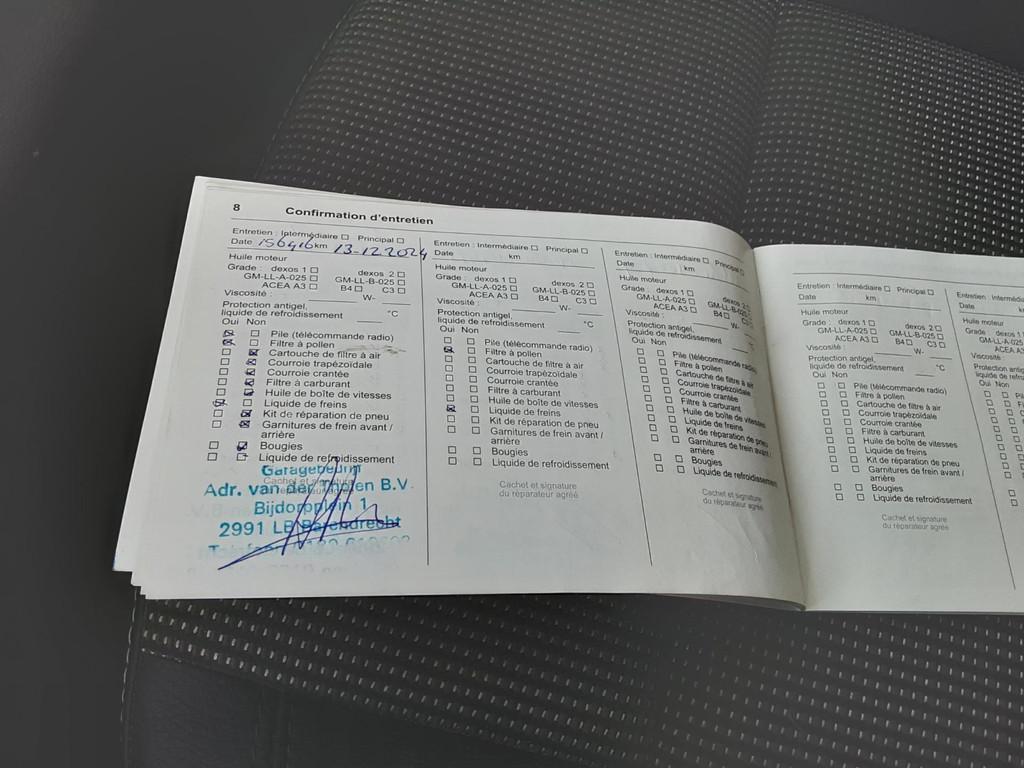 8 Confirmation d'entretien
Entretien : Intermédiaire □ Principal □
Date 156416 km 13-12-2024
Huile moteur
Grade : dexos 1 □ dexos 2 □
GM-LL-A-025 □ GM-LL-B-025 □
ACEA A3 □ B4 □ C3 □
Viscosité : W-
Protection antigel, °C
liquide de refroidissement
Oui Non
Pile (télécommande radio)
Filtre à pollen
Cartouche de filtre à air
Courroie trapézoïdale
Courroie crantée
Filtre à carburant
Huile de boîte de vitesses
Liquide de freins
Kit de réparation de pneu
Garnitures de frein avant /
arrière
Bougies
Liquide de refroidissement
Cachet et signature
du réparateur agréé
Garagebedrijf
Adr. van der Tholen B.V.
Bijdorpplein 1
2991 LB Barendrecht
Entretien : Intermédiaire □ Principal □
Date km
Huile moteur
Grade : dexos 1 □ dexos 2 □
GM-LL-A-025 □ GM-LL-B-025 □
ACEA A3 □ B4 □ C3 □
Viscosité : W-
Protection antigel, °C
liquide de refroidissement
Oui Non
Pile (télécommande radio)
Filtre à pollen
Cartouche de filtre à air
Courroie trapézoïdale
Courroie crantée
Filtre à carburant
Huile de boîte de vitesses
Liquide de freins
Kit de réparation de pneu
Garnitures de frein avant /
arrière
Bougies
Liquide de refroidissement
Cachet et signature
du réparateur agréé
Entretien : Intermédiaire □ Principal
Date km
Huile moteur
Grade : dexos 1 □ dexos 2
GM-LL-A-025 □ GM-LL-B-025
ACEA A3 □ B4 □ C3
Viscosité : W-
Protection antigel,
liquide de refroidissement
Oui Non
Pile (télécommande radio)
Filtre à pollen
Cartouche de filtre à air
Courroie trapézoïdale
Courroie crantée
Filtre à carburant
Huile de boîte de vitesses
Liquide de freins
Kit de réparation de pneu
Garnitures de frein avant /
arrière
Bougies
Liquide de refroidissement
Cachet et signature
du réparateur agréé
Entretien : Intermédiaire □ Principal □
Date km
Huile moteur
Grade : dexos 1 □ dexos 2 □
GM-LL-A-025 □ GM-LL-B-025 □
ACEA A3 □ B4 □ C3 □
Viscosité : W-
Protection antigel, °C
liquide de refroidissement
Oui Non
Pile (télécommande radio)
Filtre à pollen
Cartouche de filtre à air
Courroie trapézoïdale
Courroie crantée
Filtre à carburant
Huile de boîte de vitesses
Liquide de freins
Kit de réparation de pneu
Garnitures de frein avant /
arrière
Bougies
Liquide de refroidissement
Cachet et signature
du réparateur agréé
Entretien : Intermédi
Date
Huile moteur
Grade : dexos 1
GM-LL-A-025
ACEA A3
Viscosité :
Protection antig
liquide de refro
Oui Non